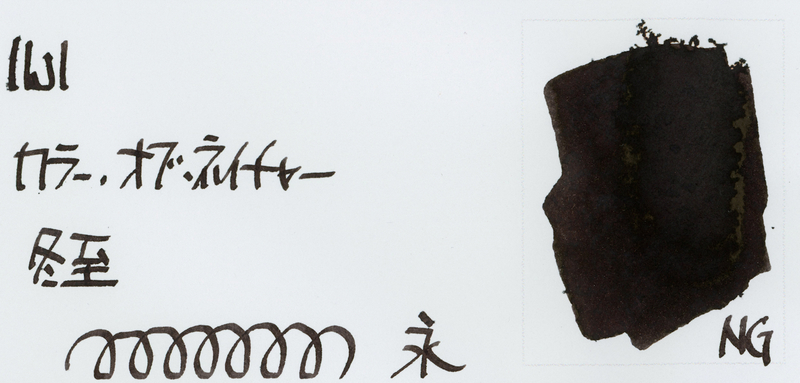 カラー・オブ・ネイチャー
冬至
永
NG